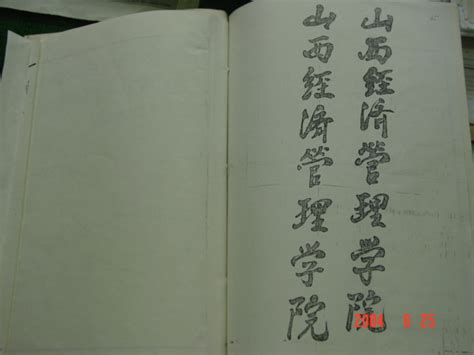 山西经济管理学院
山西经济管理学院
2004 6 25